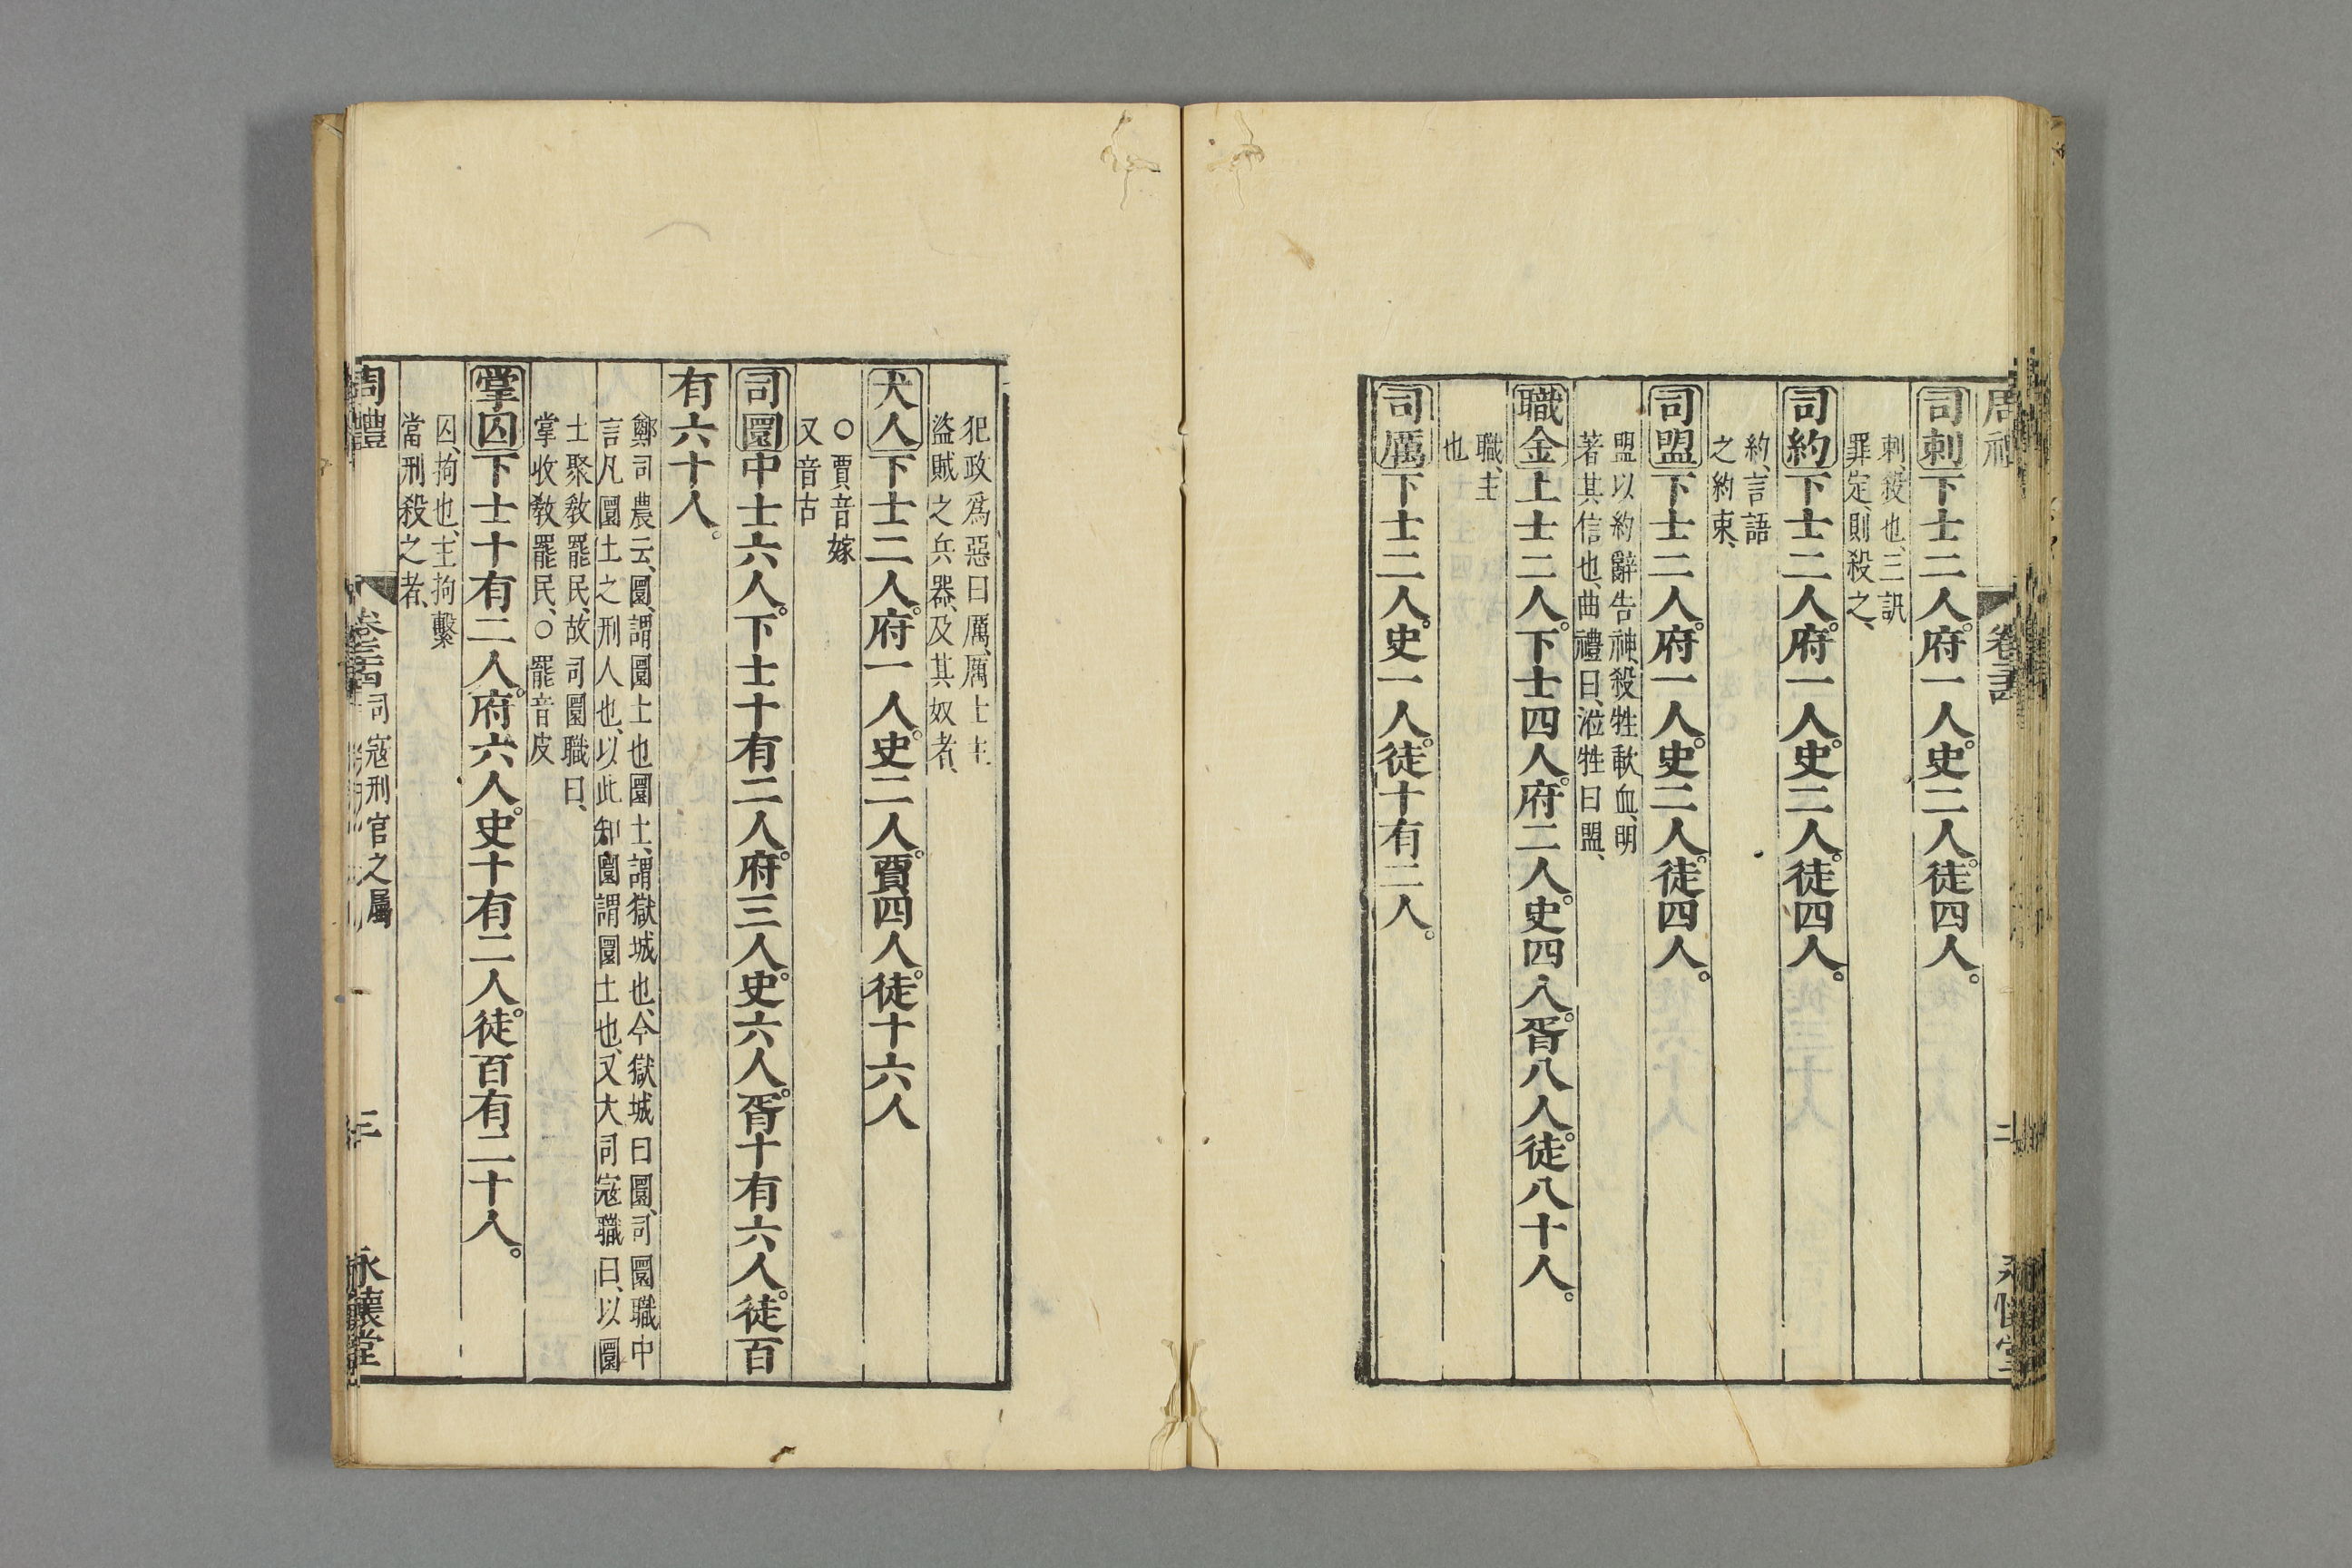 司刺下士二人。府一人。史二人。徒四人。
刺、殺也、三訊
罪定、則殺之、
司約下士二人。府一人。史二人。徒四人。
約、言語
之約束、
司盟下士二人。府一人。史二人。徒四人。
盟以約辭告神、殺牲歃血、明
著其信也、曲禮曰、涖牲曰盟、
職金上士二人。下士四人。府二人。史四人。胥八人。徒八十人。
職、主
也
司厲下士二人。史一人。徒十有二人。
犯政爲惡曰厲、厲士主
盜賊之兵器、及其奴者、
犬人下士二人。府一人。史二人。賈四人。徒十六人
○賈音嫁
又音古
司圜中士六人。下士十有二人。府三人。史六人。胥十有六人。徒百
有六十人。
鄭司農云、圜、謂圜土也、圜土、謂獄城也、今獄城曰圜、司圜職中
言凡圜土之刑人也、以此知圜謂圜土也、又大司寇職曰、以圜
土聚教罷民、故司圜職曰、
掌收教罷民、○罷音皮
掌囚下士十有二人。府六人。史十有二人。徒百有二十人。
囚、拘也、主拘繫
當刑殺之者、
周禮 卷三十四 司寇刑官之屬 三 永懷堂